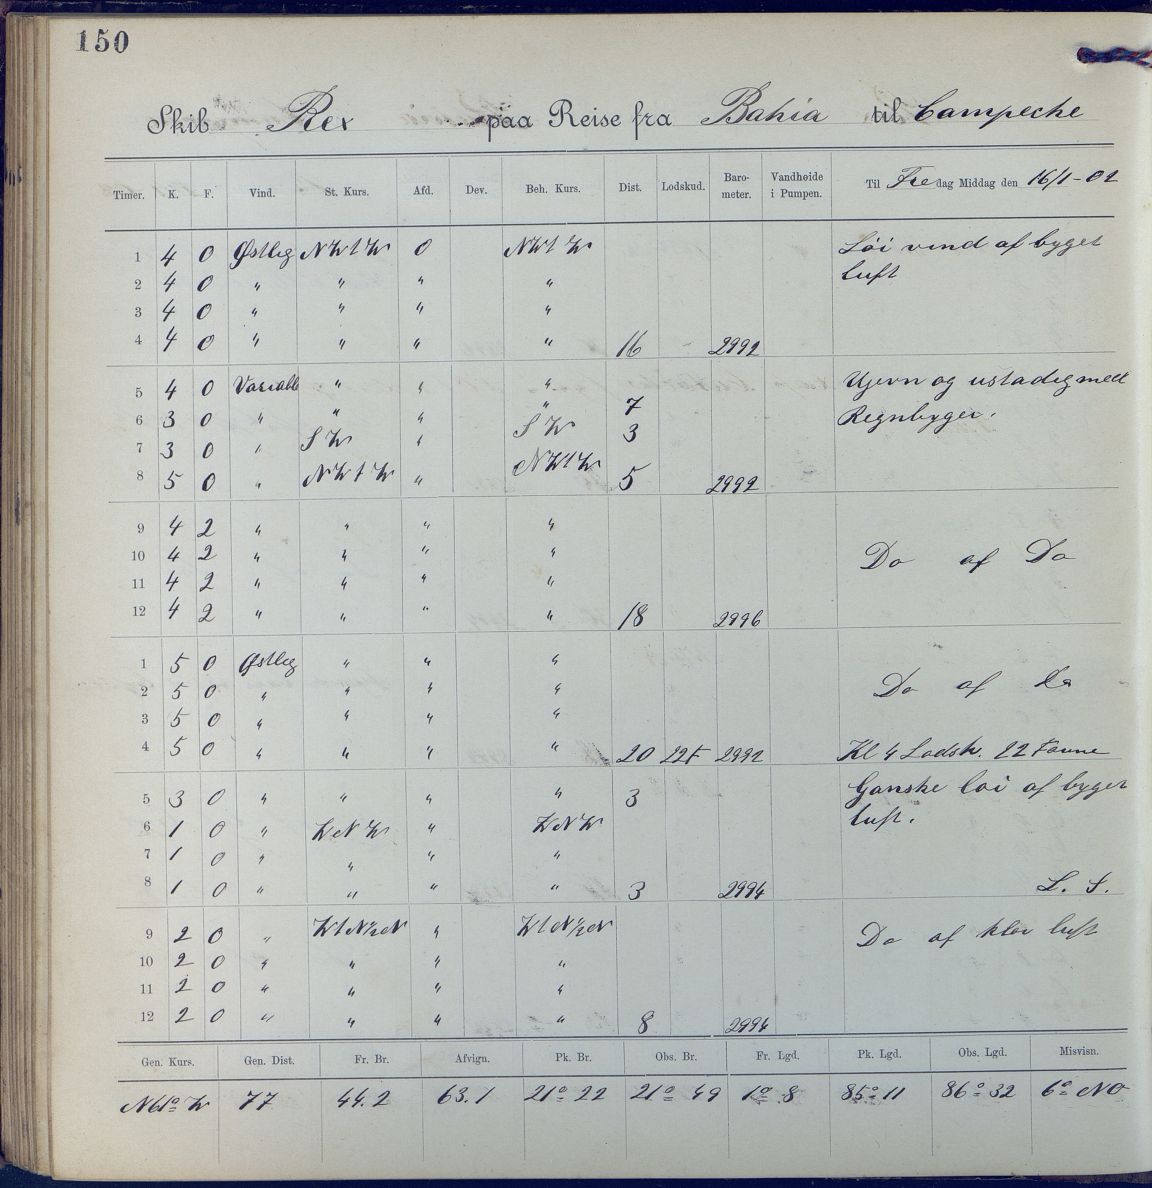 150
Skib Rex paa Reise fra Bahia til Campeche
Timer. K. F. Vind. St. Kurs. Afd. Dev. Beh. Kurs. Dist. Lodskud. Baro-meter. Vandheide i Pumpen. Til Fredag Middag den 16/1-02
1 4 0 Østlig NWtW 0 NWtW Löi vind af byget
2 4 0 " " " " luft
3 4 0 " " " "
4 4 0 " " " " 16 2992
5 4 0 Variabl " " " Ujevn og ustadig med
6 3 0 " " " " 7 Regnbyger.
7 3 0 " SW " SW 3
8 5 0 " NWtW " NWtW 5 2992
9 4 2 " " " "
10 4 2 " " " " Do af Do
11 4 2 " " " "
12 4 2 " " " " 18 2996
1 5 0 Østlig " " "
2 5 0 " " " " Do af Do
3 5 0 " " " "
4 5 0 " " " " 20 22F 2992 Kl 4 Lodsk. 22 Favne
5 3 0 " " " " 3 Ganske löi af byget
6 1 0 " WNW " WNW luft.
7 1 0 " " " "
8 1 0 " " " " 3 2994 L. S.
9 2 0 " WtN½N " WtN½N Do af klar luft
10 2 0 " " " "
11 2 0 " " " "
12 2 0 " " " " 8 2994
Gen. Kurs. Gen. Dist. Fr. Br. Afvign. Pk. Br. Obs. Br. Fr. Lgd. Pk. Lgd. Obs. Lgd. Misvisn.
N61°W 77 44.2 63.1 21° 22 21° 49 1° 8 85° 11 86° 32 6° NO